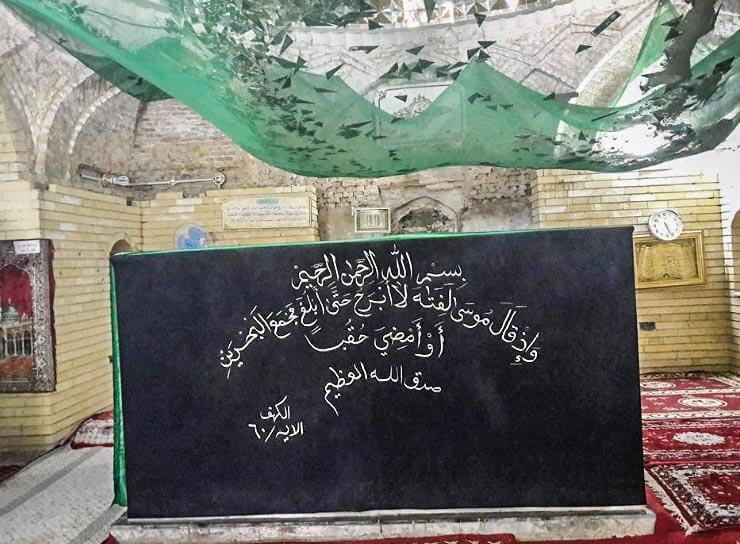 بسم الله الرحمن الرحيم
وَإِذْ قَالَ مُوسَىٰ لِفَتَاهُ لَا أَبْرَحُ حَتَّىٰ أَبْلُغَ مَجْمَعَ الْبَحْرَيْنِ
أَوْ أَمْضِيَ حُقُبًا
صدق الله العظيم
الكهف
الايه/٦٠